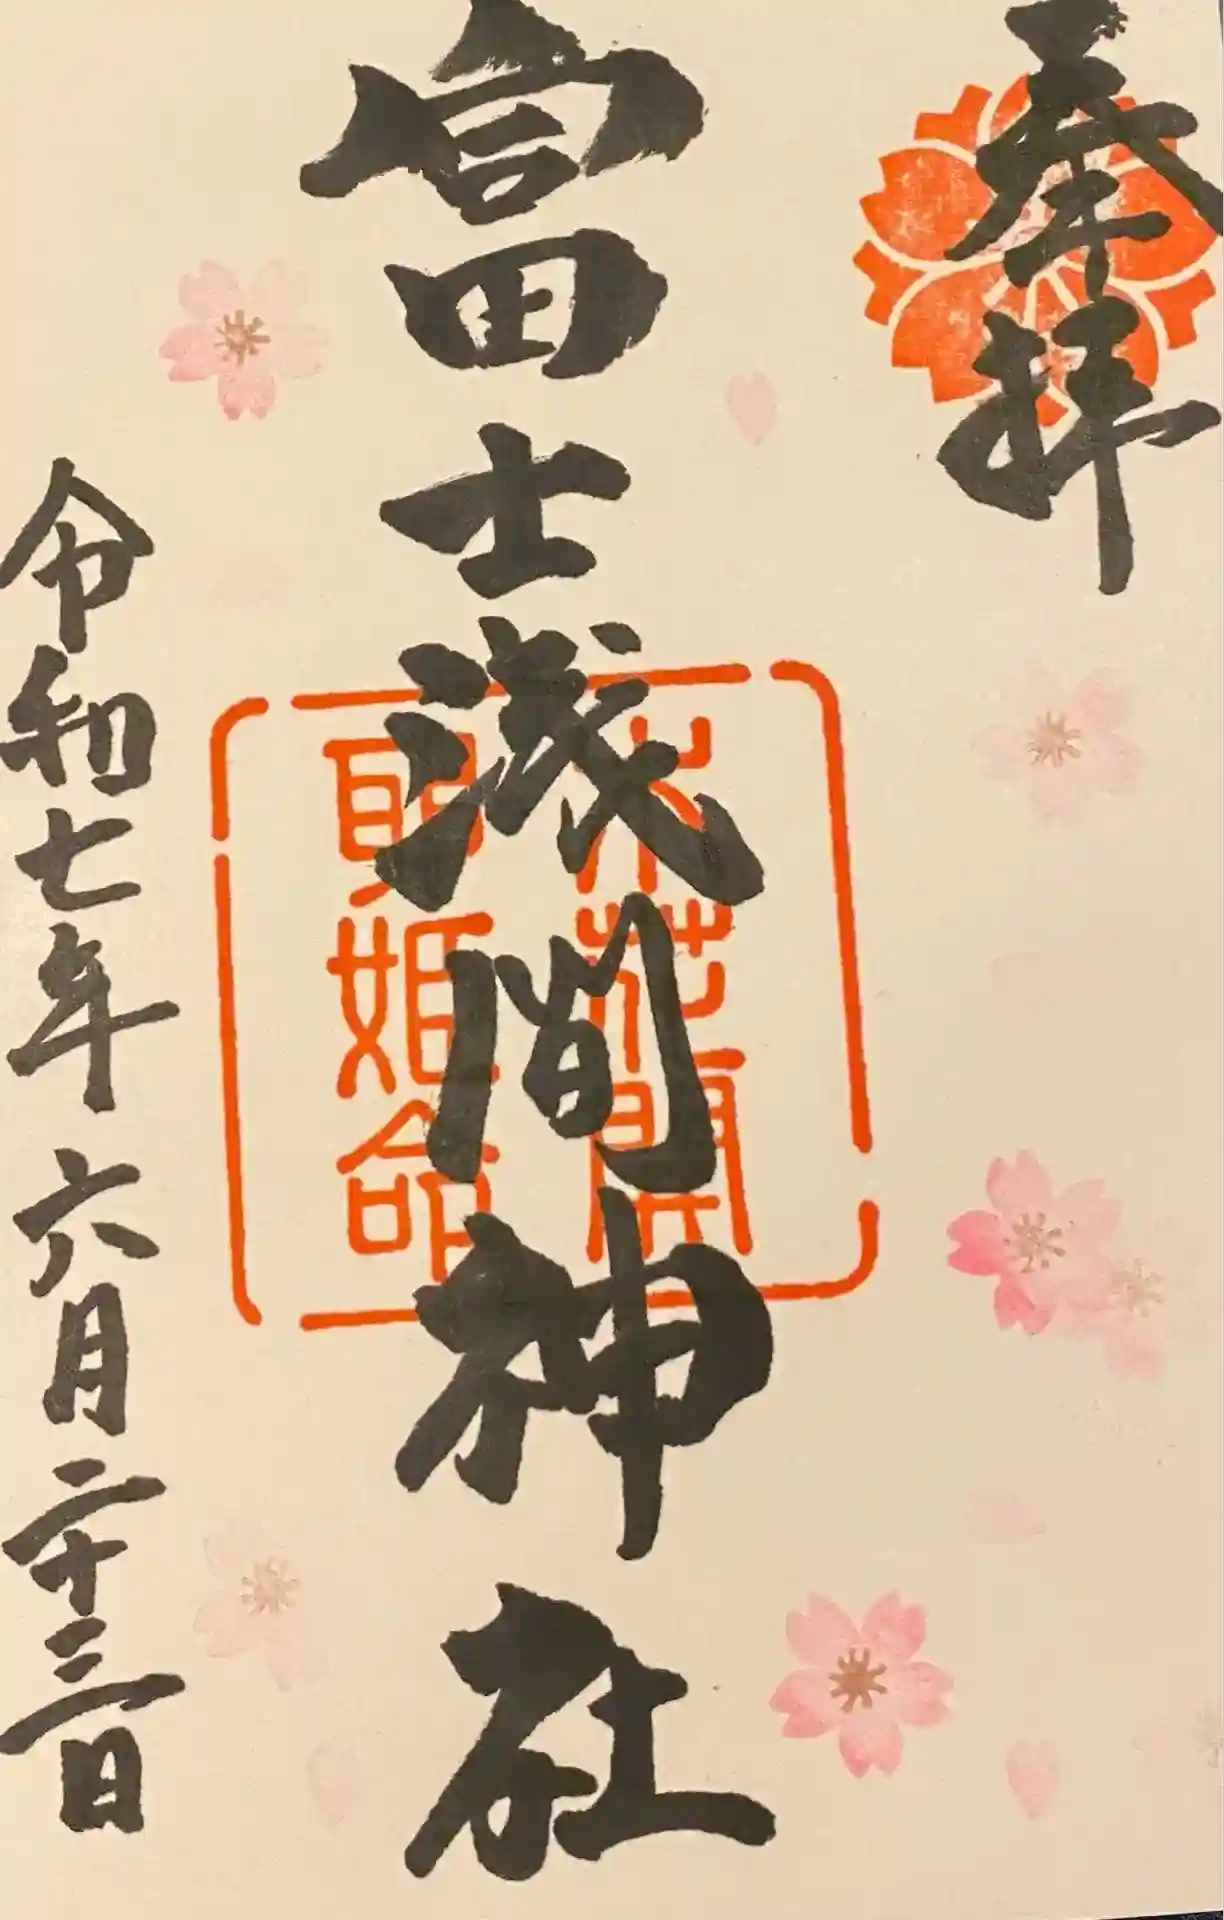 奉拝
富士浅間神社
木花開
耶姫命
令和七年六月二十三日